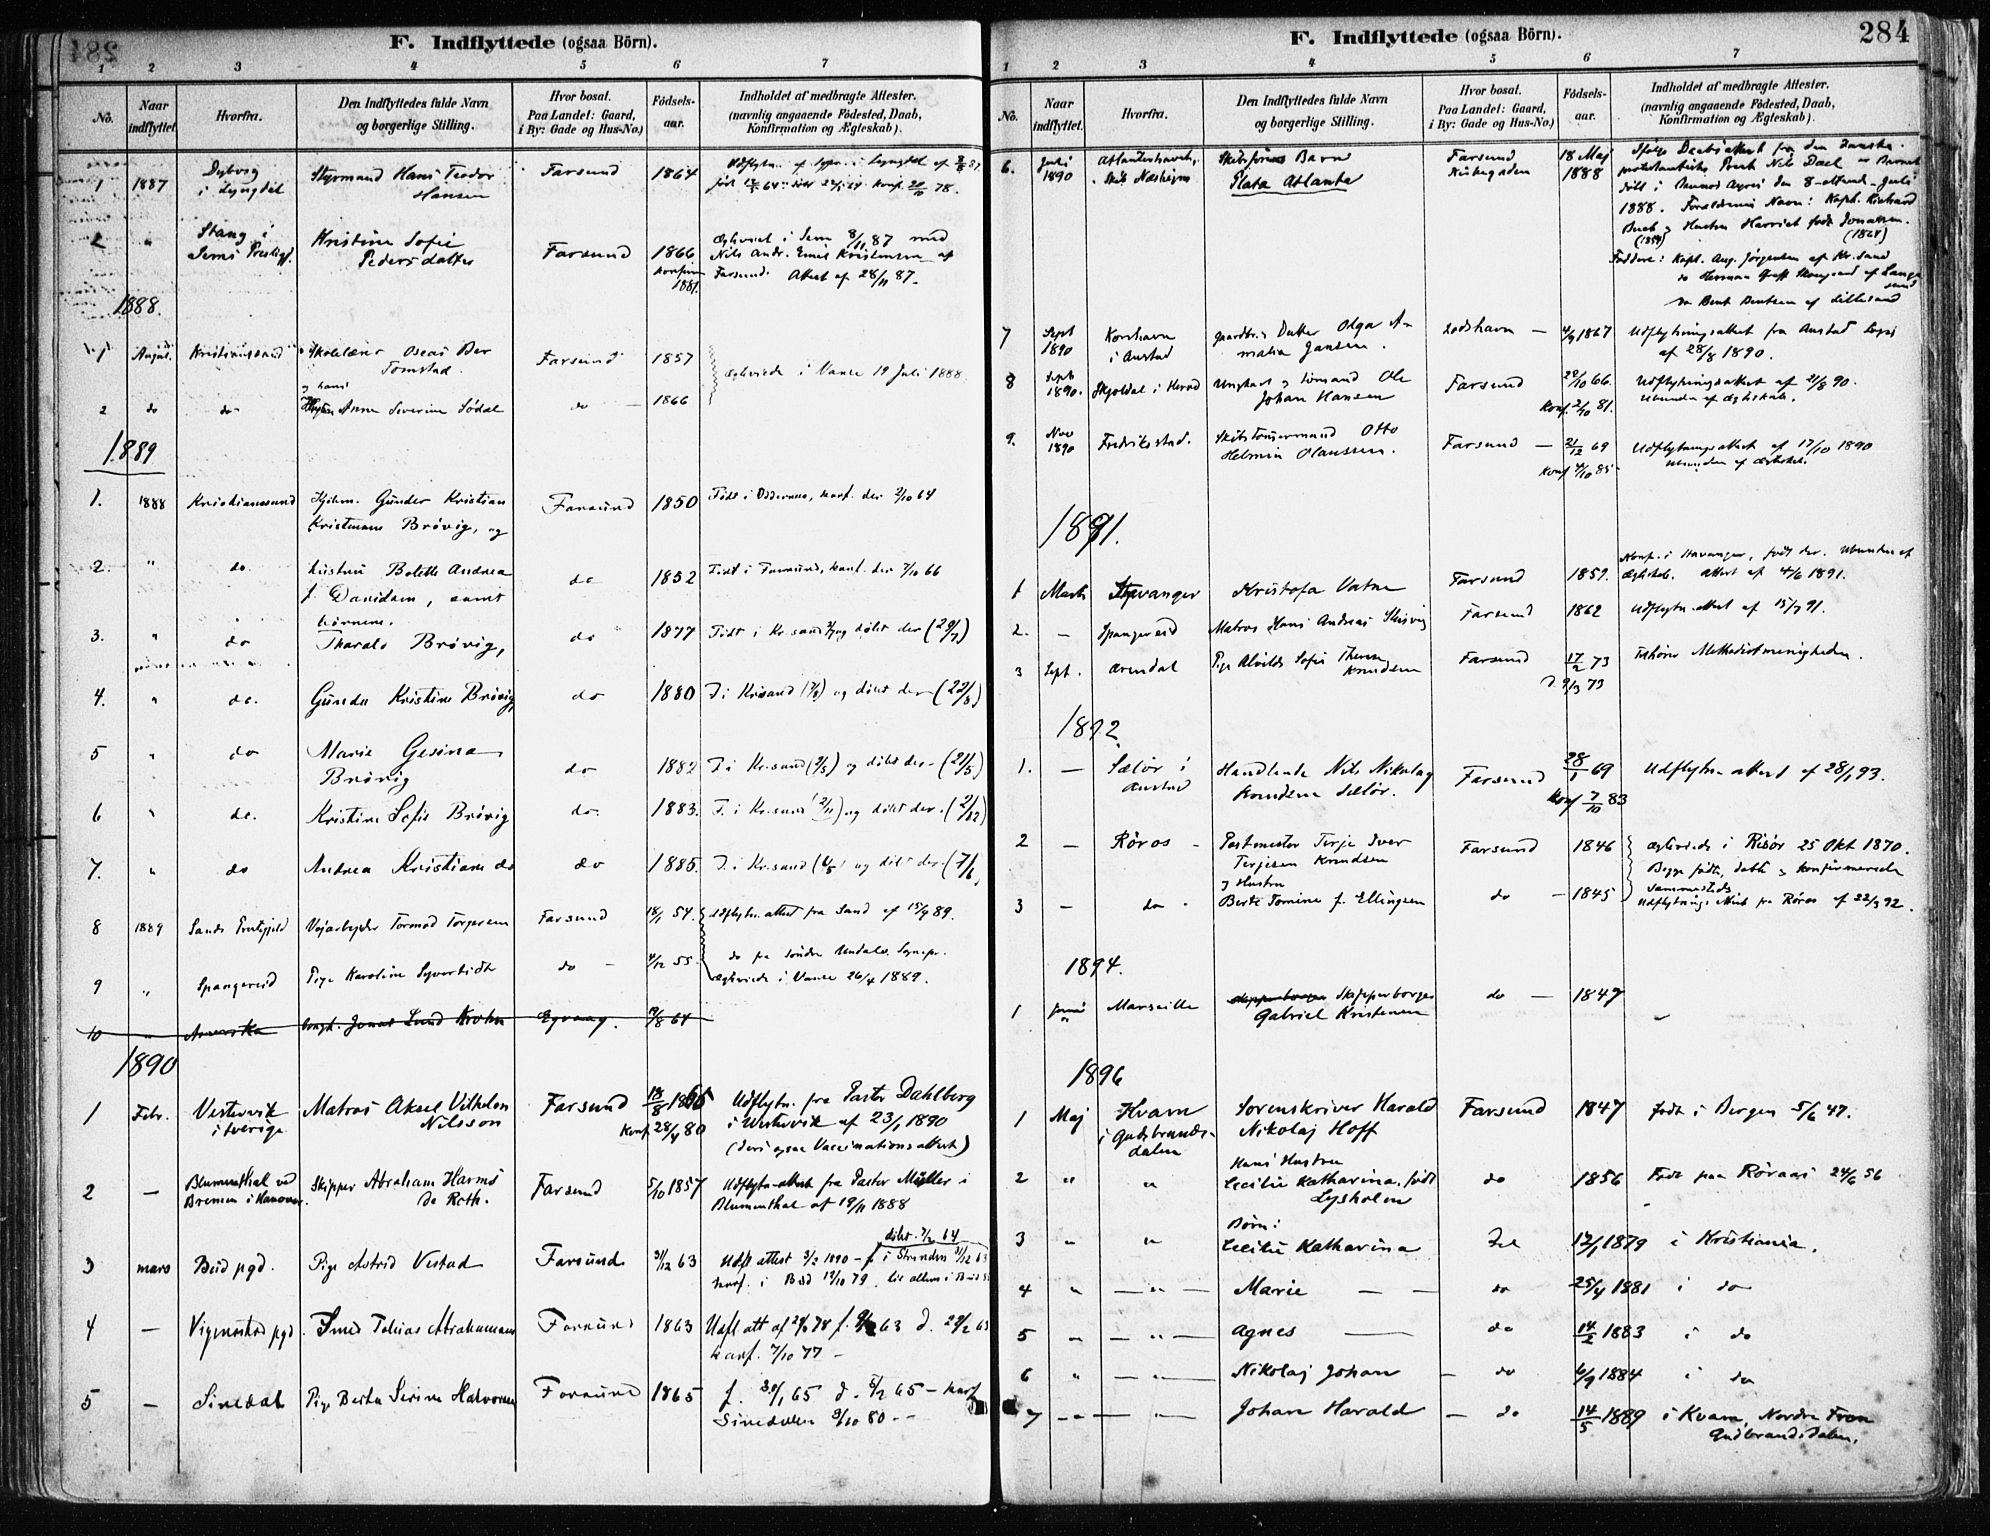 284
F. Indflyttede (ogsaa Börn).
1 2 3 4 5 6 7
No.
Naar indflyttet.
Hvorfra.
Den Indflyttedes fulde Navn
og borgerlige Stilling.
Hvor bosat.
Paa Landet: Gaard,
i By: Gade og Hus-No.)
Födsels-
aar.
Indholdet af medbragte Attester.
(navnlig angaaende Födested, Daab,
Konfirmation og Ægteskab).
1 1887 Dybvig Styrmand Hans Teodor Farsund 1864
i Lyngdal Hansen
2 " Stang i Kristine Sofie Farsund 1866 Ægteviet i Sem 8/11 87 med
Sems Prestgj. Pedersdatter konfirm Nils Andr. Emil Kristensen af
1881. Farsund. Attest af 28/11 87.
1888.
1 August Kristianssund Skolelærer Oscar Ber Farsund 1857
Tomstad. Ægteviede i Vanse 19 Juli 1888.
og hans
2 do do Hustru Anne Severine Sødal do 1866
1889
1. 1888 Kristianssund Gunder Kristian Farsund 1850 Født i Oddernes, konf. der 2/10 64
Kristensen Brövig, og
2. " do. hustru Bolette Andrea do 1852 Født i Farsund, konf. der 7/10 66
f. Davidsen, samt
børnene.
3. " do Tharald Brövig, do 1877 Født i Kr.sand og döbt der
4. " do. Gunda Kristine Brövig, do 1880 F. i Kr.sand og döbt der (22/8)
5 " do Marie Gesina do 1882 F. i Kr.sand (9/5) og döbt der (21/5)
Brövig
6 " do. Kristine Sofie Brövig do. 1883. F. i Kr.sand og döbt der.
7. " do Andrea Kristiane do do 1885. F. i Kr.sand og döbt der
8 1889 Sands Prstgjeld Vejarbejder Tormod Torgersen Farsund 18/1 54. Udflytn. attest fra Sand af 15/4 89.
9 " Spangereid Pige Karoline Syvertsdtr do 4/12 55. do fra Söndre Undalss. Sognepr.
Ægteviede i Vanse 26/4 1889.
10 " Amerika Ungk. Jonas Lund Krohn Egvaag. 64
1890
1 Febr. Vestervik Matros Aksel Vilhelm Farsund 18/8 1865 Udflytn. fra Pastor Dahlberg
i Sverige Nilsson Konf. 28/4 80 i Westervik af 23/1 1890
(deri ogsaa Vaccinationsattest)
2 — Blumenthal ved Skipper Abraham Harms Farsund 5/10 1857 Udflytn. attest fra Pastor Müller i
Bremen i Hanover De Roth. Blumenthal af 19/11 1888
döbt 7/2 64
3 mars Bud pgd. Pige Astrid Vestad Farsund 31/12 63 Udfl attest 3/2 1890 – f. i Stranden 31/12 63
konf. i Bud 19/10 79
4 — Vigmostad pgd Smed Tobias Abrahamsen Farsund 1863
konf. 7/10 77 –
5 — Siredal Pige Berta Serine Halvorsen Farsund 1865 f. 30/1 65 d. 5/2 65 – konf
Siredalen 3/10 80 – –
284
F. Indflyttede (ogsaa Börn).
1 2 3 4 5 6 7
No.
Naar indflyttet.
Hvorfra.
Den Indflyttedes fulde Navn
og borgerlige Stilling.
Hvor bosat.
Paa Landet: Gaard,
i By: Gade og Hus-No.)
Födsels-
aar.
Indholdet af medbragte Attester.
(navnlig angaaende Födested, Daab,
Konfirmation og Ægteskab).
6. Juli Atlanterhavet, Skibsförers Barn Farsund 18 Maj Ifølge Daabsattest fra den danske
1890 Plata Atlanta 1888 protestantiske Prest Nils Dael er Barnet
döbt i Buenos Ayres den 8-ottende – Juli
1888. Forældrenes Navn: Kapt. Richard
og Hustru Harriet født Jonassen.
(1854) (1864)
Faddere: Kapt. Aug. Jørgensen af Kr.sand
do Herman
do Bent Bentsen af Lillesand
7 Sept Korshavn Gaardbr.s Datter Olga A- Lodshavn – 4/9 1867 Udflytningsattest fra Austad Sogn
1890 i Austad malia Jansen. af 28/8 1890.
8 Sept Skjoldal i Herad Ungkarl og Sömand Ole Farsund 28/10 66. Udflytningsattest af 21/8 90.
1890. Johan Hansen Konf. 2/10 81. Ubunden af Ægteskab.
9. Nov Fredriksstad. Skibstömmermand Otto Farsund – 21/12 69 Udflytningsattest af 17/10 1890
1890 Helmin Olaussen. Konf 4/10 85 – ubunden af Ægteskab.
1891.
1 Marts Stavanger Kristofa Vatne Farsund 1859. Konf. i Stavanger, født der. Ubunden af
Ægteskab. Attest af 4/6 1891.
2. – Spangereid Matros Hans Andreas Farsund 1862 Udflytn. attest af 15/7 91.
3 Sept. Arendal Pige Alvilde Sofie Therese Farsund 17/2 73 Tilhører Methodistmenigheden.
Knudsen
1892
1. – Selör i Handlende Nils Nikolay Farsund 28/1 69 Udflytn. attest af 28/1 93.
Austad Knudsen Selör. Konf 7/10 83
2 – Röros – Postmester Terje Iver Farsund 1846 Ægteviede i Risör 25 Okt 1870.
Terjesen Knudsen Begge födte, döbte og konfirmerede
og Hustru sammesteds.
3 – do – Berte Tomine f. Ellingsen do – 1845 Udflytnings Attest fra Röros af 22/3 92.
1894.
1 Marseille Skipperborger do – 1847
Gabriel Kristensen
1896
1 Maj Kvam Sorenskriver Harald Farsund 1847 født i Bergen 5/6 47.
i Gudbrands- Nikolaj Hoff
dalen
Hans Hustru
2 " " Cecilie Katharina, født do 1856 Født paa Röraas 24/6 56
Lysholm
Börn:
3 " " Cecilie Katharina do 12/1 1879 i Kristiania.
4 " — " — Marie — — do 25/4 1881 i do
5 " — " — Agnes — do 14/2 1883 i do
6 " — " — Nikolaj Johan – do 6/9 1884 i do
7 – " — " — Johan Harald – do 14/5 1889 i Kvam, Nordre Fron
Gudbrandsdalen.